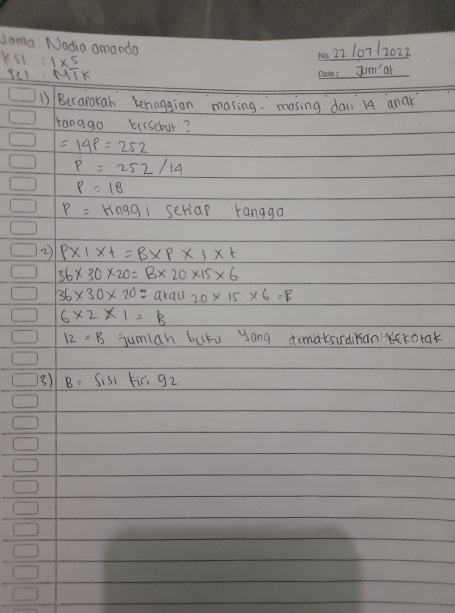 Nama: Nadia amanda
No. 22/07/2022
Ksl : 1x5
: MTK
Date: Jum'at
1) Berapakah ketinggian masing-masing dari 14 anak
tangga tersebut?
= 14P = 252
P = 252/14
P = 18
P = tinggi setiap tangga
2) P x l x t = B x P x l x t
36 x 30 x 20 = B x 20 x 15 x 6
36 x 30 x 20 = atau 20 x 15 x 6 = B
6 x 2 x 1 = B
12 = B jumlah buku yang dimaksudkan kekotak
3) B = Sisi kiri 92